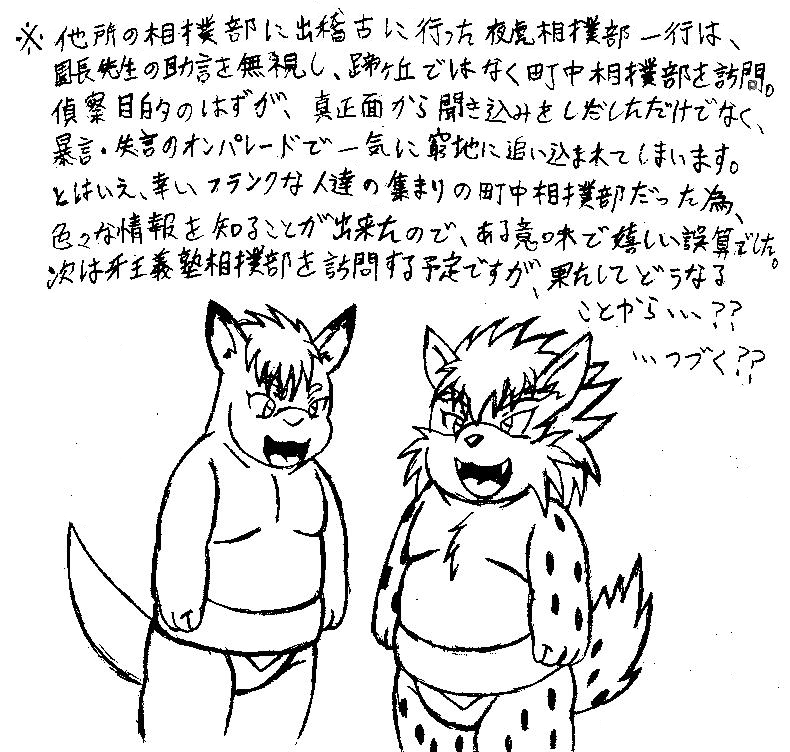 ※ 他所の相撲部に出稽古に行った夜虎相撲部一行は、
園長先生の助言を無視し、蹄ヶ丘ではなく町中相撲部を訪問。
偵察目的のはずが、真正面から聞き込みをしだしただけでなく、
暴言・失言のオンパレードで一気に窮地に追い込まれてしまいます。
とはいえ、幸いフランクな人達の集まりの町中相撲部だった為、
色々な情報を知ることが出来たので、ある意味で嬉しい誤算でした。
次は牙王義塾相撲部を訪問する予定ですが、果たしてどうなる
ことやら…??
…つづく??